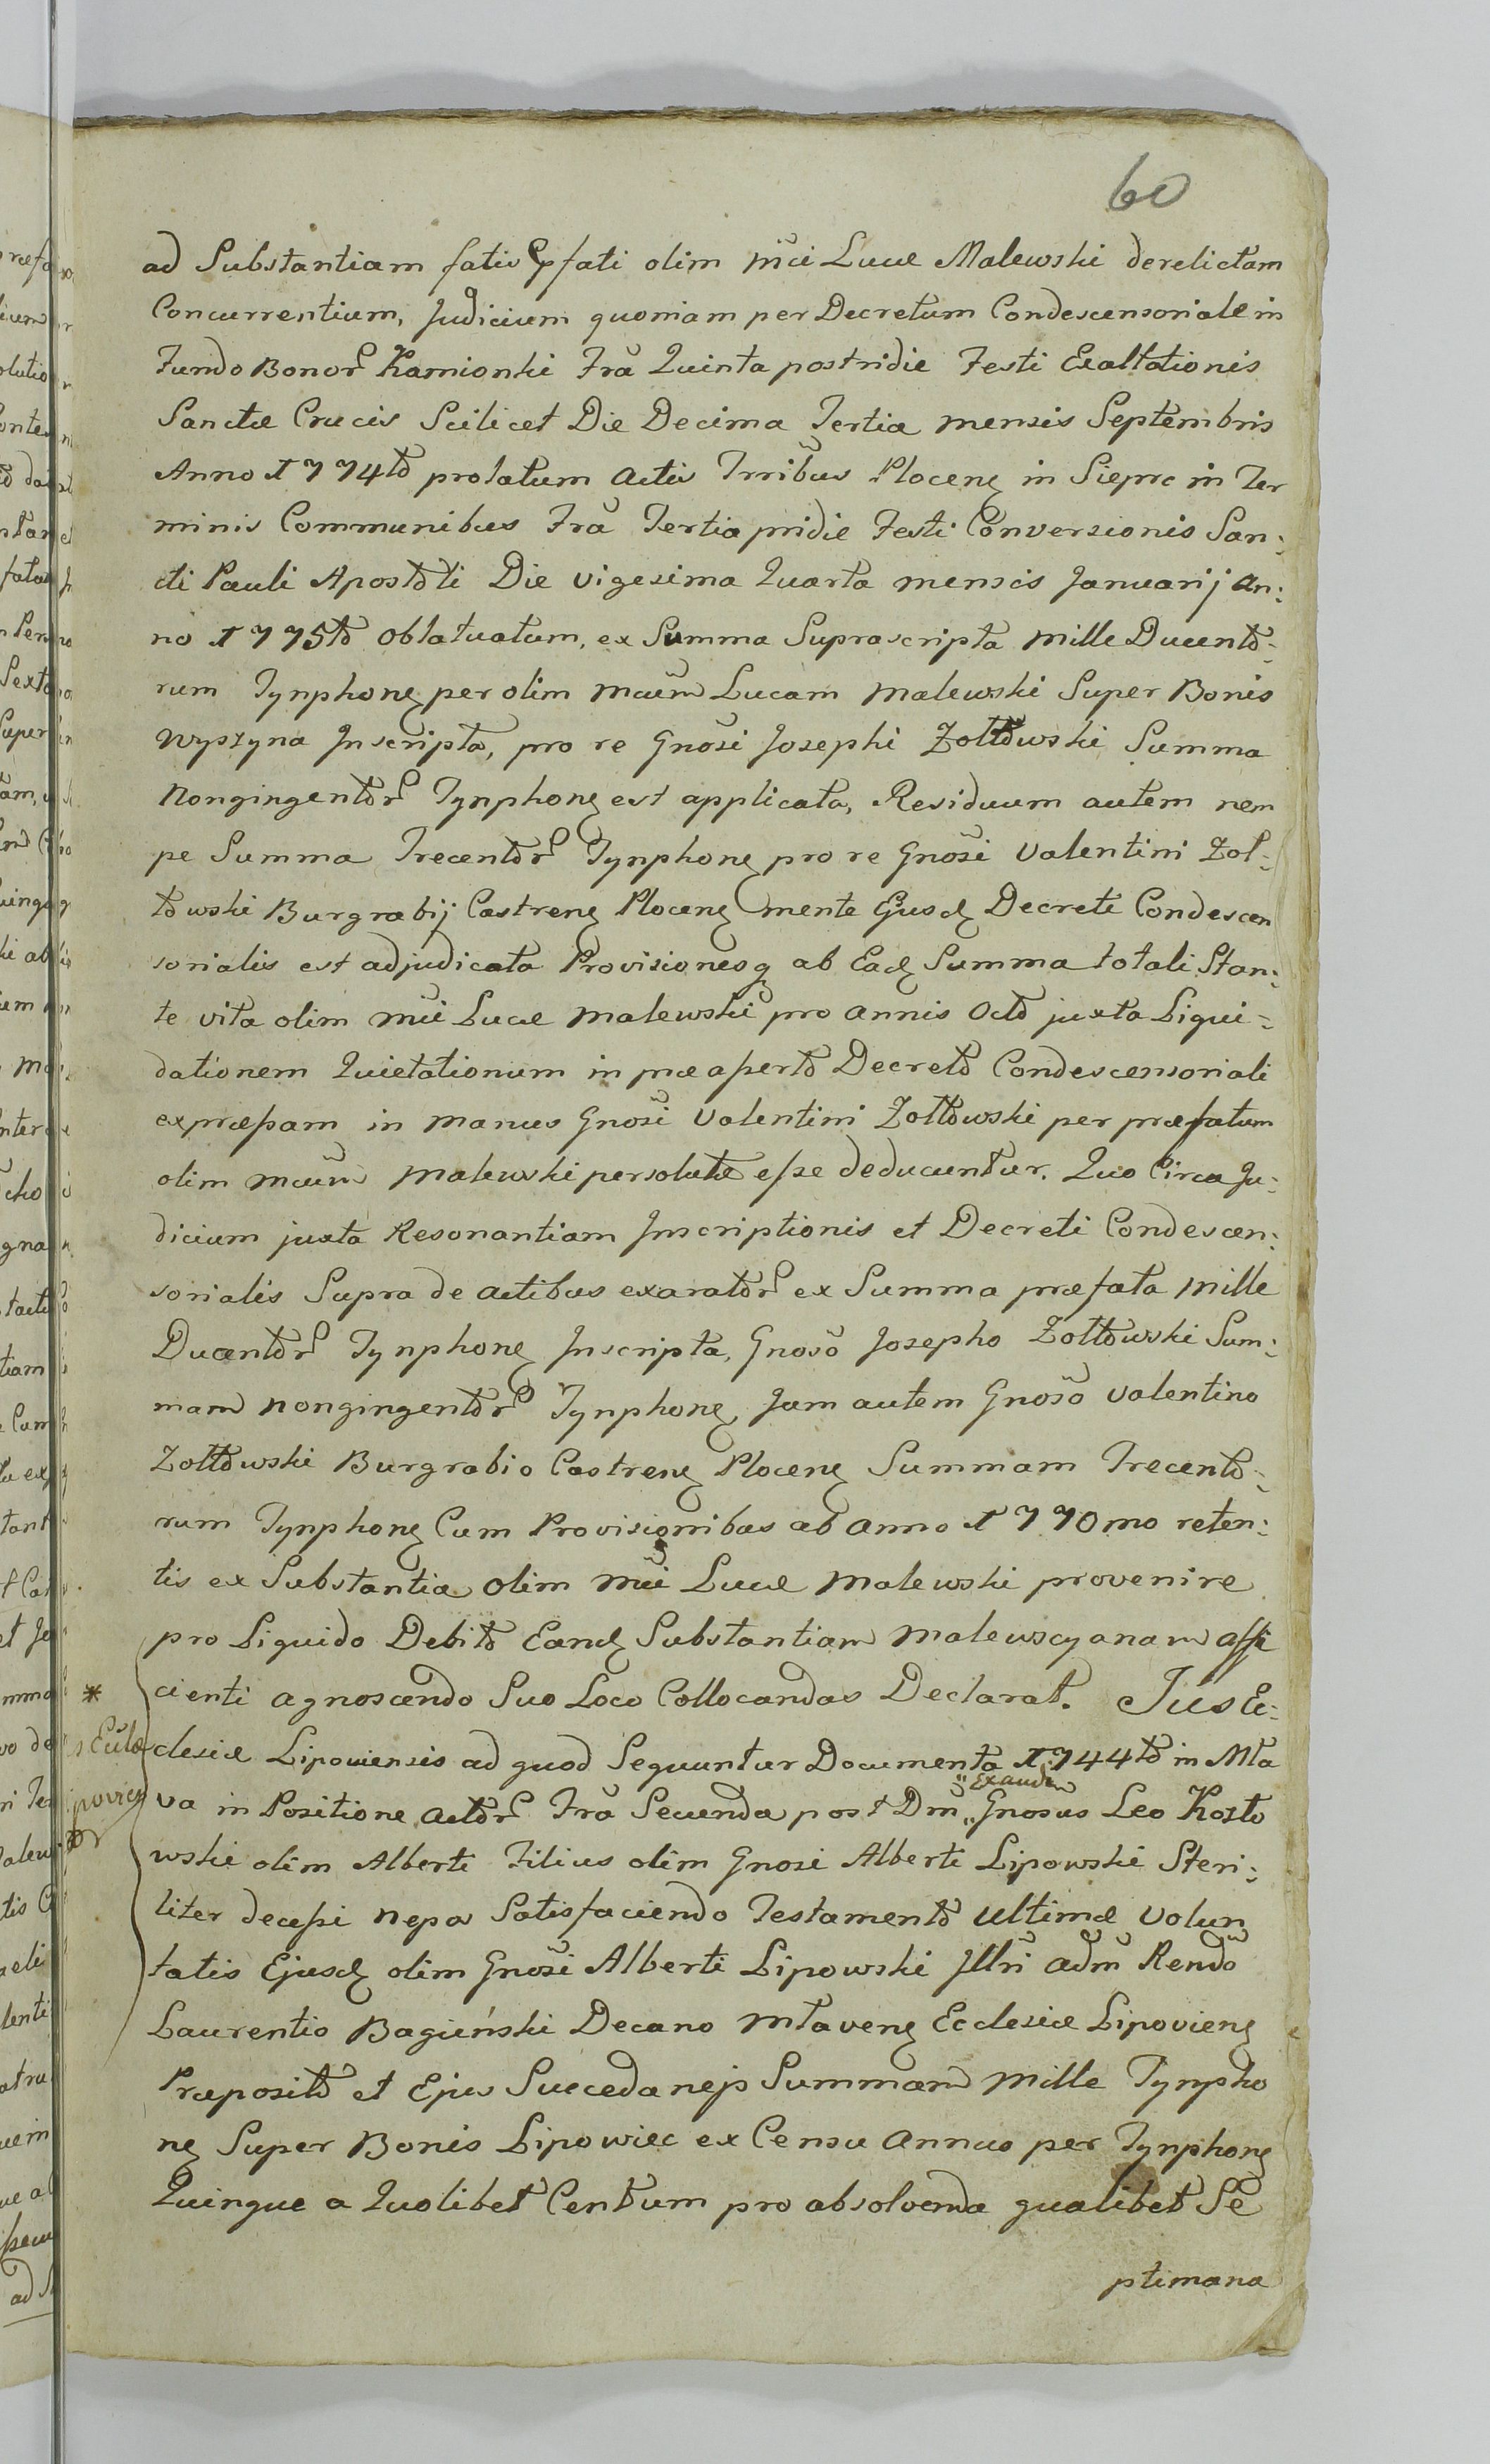 60
ad Substantiam fatis pfati olim mci Lucæ Malewski derelictam
Concurrentium, Judicium quoniam per Decretum Condescensoriale in
Fundo Bonor Kamionki Fra Quinta postridie Festi Exaltationis
Sanctæ Crucis Scilicet Die Decima Tertia mensis Septembris
Anno 1774to prolatum Actis Trribus Plocen in Sieprc in Ter
minis Communibus Fra Tertia pridie Festi Conversionis San:
cti Pauli Apostoli Die vigesima Quarta mensis Januarij An:
no 1775to oblatuatum, ex Summa Suprascripta Mille Ducento:
rum Tynphon per olim mcum Lucam Malewski Super Bonis
Wyszyna Inscripta, pro re Gnosi Josephi Zołtowski Summa
Nongingentor Tynphon est applicata, Residuum autem nem
pe Summa Trecentor Tynphon pro re Gnosi Valentini Zoł:
towski Burgrabij Castren Plocen mente Ejusd Decreti Condescen
sorialis est adjudicata Provisionesq ab Ead Summa totali Stan:
te vita olim mci Lucæ Malewski pro Annis Octo juxta Liqui:
dationem Quietationum in præaperto Decreto Condescensoriali
expræssam in manus Gnosi Valentini Zołtowski per præfatum
olim mcum Malewski persolutæ esse deducuntur. Quo Circa Ju:
dicium juxta Resonantiam Inscriptionis et Decreti Condescen:
sorialis Supra de actibus exarator ex Summa præfata Mille
Ducentor Tynphon Inscripta, Gnoso Josepho Zołtowski Sum:
mam Nongingentor Tynphon, Jam autem Gnoso Valentino
Zołtowski Burgrabio Castren Plocen Summam Trecento:
rum Tynphon Cum Provisionibus ab Anno 1770mo reten:
tis ex Substantia olim mci Lucæ Malewski provenire
pro Liquido Debito Eand Substantiam Malewscyanam affi
cienti agnoscendo Suo Loco Collocandas Declarat. Jus Ec:
clesiæ Lipoviensis ad quod Sequuntur Documenta 1744to in Mła
va in Positione Actor Fra Secunda post Dm „Exaudi„ Gnosus Leo Kosto
wski olim Alberti Filius olim Gnosi Alberti Lipowski Steri:
liter decessi nepos Satisfaciendo Testamento Ultimæ Volun
tatis Ejusd olim Gnosi Alberti Lipowski Jllri adm Rendo
Laurentio Bagieński Decano Młaven Ecclesiæ Lipovien
Præposito et Ejus Succedanejs Summam Mille Tynpho
n Super Bonis Lipowiec ex Censu Annuo per Tynphon
Quinque a Quolibet Centum pro absolvenda qualibet Se
ptimana